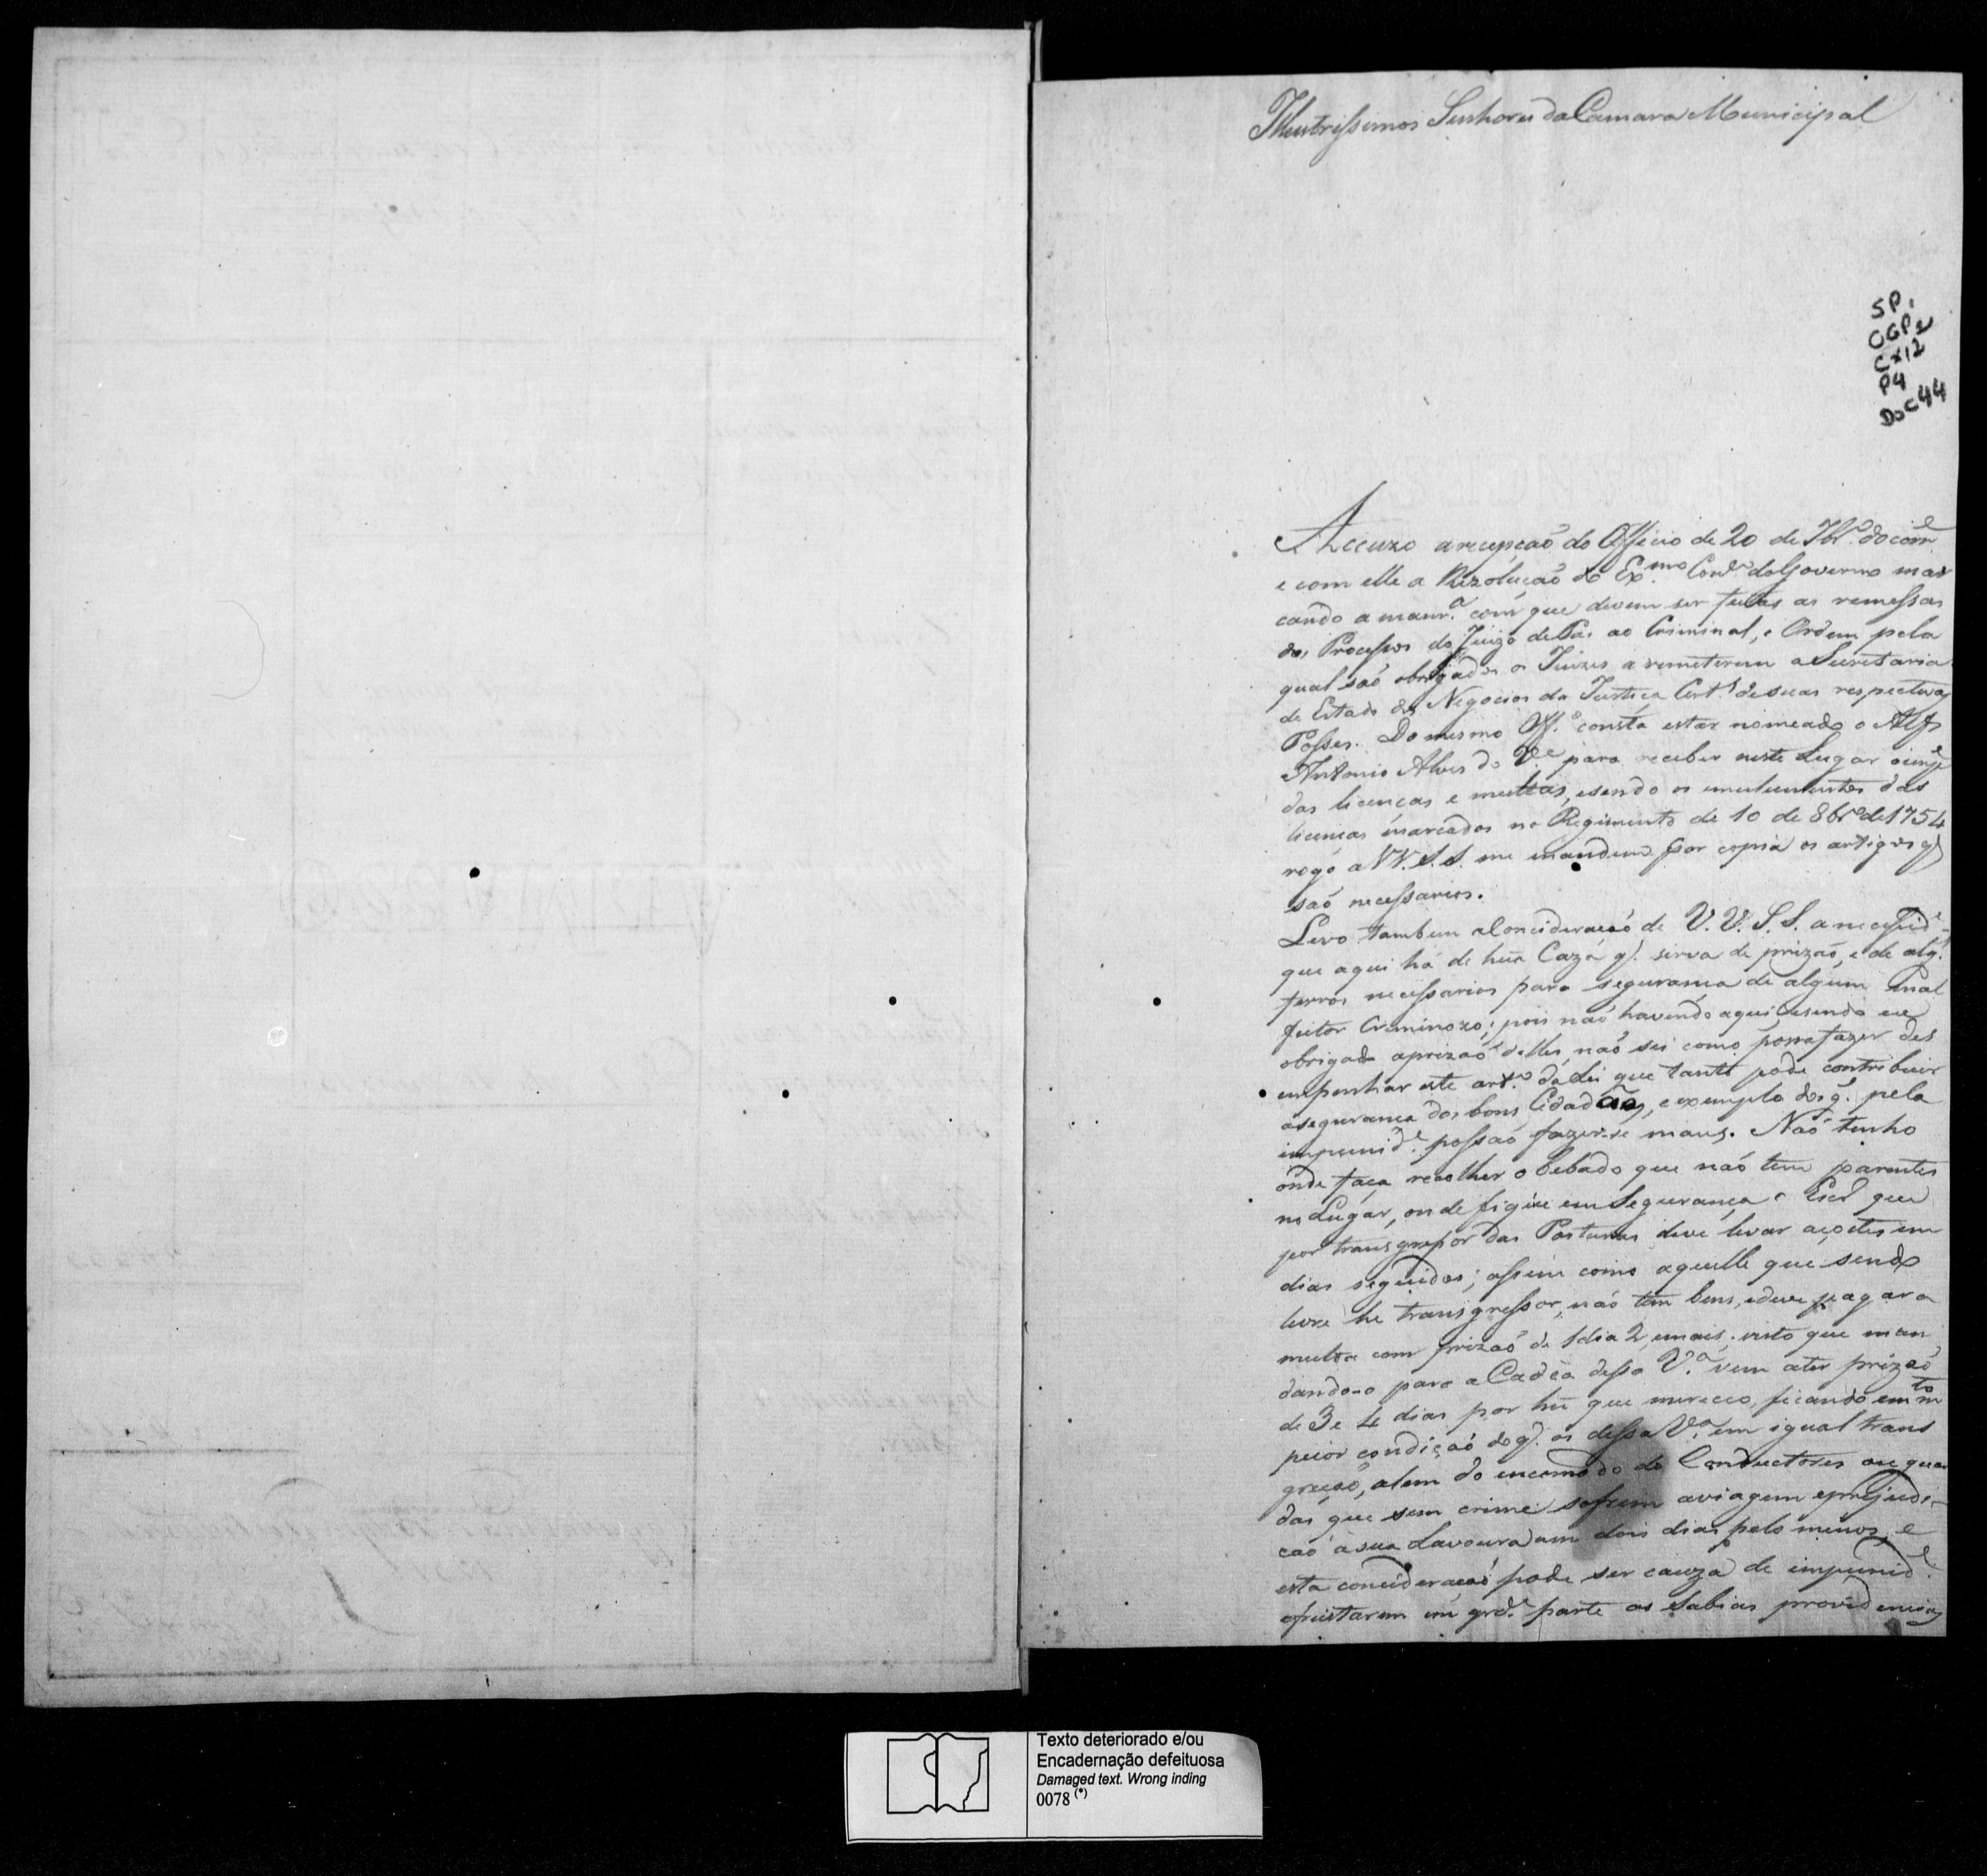 Illustrissimos Senhores da Camara Municipal
SP.
CGP2
Cx12
P4
Doc44
Accuzo a recepçaõ do Officio de 20 de 7br.º do corr.e
e com elle a Rezoluçaõ do Ex.mo Cons.º do Governo mar
cando a manr.a com que devem ser feitas as remessas
dos Processos do Juizo de Paz ao Criminal, e Ordem pela
qual saõ obrigados os Juizes a remeterem a Secretaria
de Estado dos Negocios da Justiça Cert. de suas respectivas
Posses. Do mesmo Off.º consta estar nomeado o Alfs
Antonio Alves do V.e para receber neste Lugar o
das licenças e multas, e sendo os emulumentos das
licenças marcados no Regimento de 10 de 8br.º de 1754
rogo a VV. S.S. me mandem por copia os artigos q
saõ necessarios.
Levo tambem a Concideracaõ de V.V. S.S. a necessid.e
que aqui há de hũa Caza q. sirva de prizaõ, e de alg.s
ferros necessarios para seguransa de algum mal
feitor Criminozo; pois naõ havendo aqui, e sendo eu
obrigado a prizaõ delles, naõ sei como possa fazer des
empenhar este art.º da Lei que tanto pode contribuir
a seguranca dos bons Cidadãos, e exemplo dos q. pela
impunid.e possaõ fazer-se maus. Naõ tenho
onde faça recolher o bebado que naõ tem parentes
no Lugar, onde fique em Segurança o Escr. que
por transgressor das Posturas deve levar açoites em
dias seguidos; assim como aquelle que sendo
livre he transgressor, naõ tem bens, e deve pagar a
multa com prizaõ de 1 dia 2, e mais, visto que man
dando-o para a Cadêa dessa V.a vem a ter prizaõ
de 3 e 4 dias por hũ que mereceo, ficando em m.to
peior condiçaõ do q. os dessa V.a em igual trans
greçaõ, alem do encomodo do Conductores ou guar
das que sem crime sofrem a viagem e prejudi-
caõ á sua Lavoura um dois dias pelo menos, e
esta concideracaõ pode ser cauza de impunid.e
e frustarem em grd.e parte as Sabias providencias
Texto deteriorado e/ou
Encadernação defeituosa
Damaged text. Wrong inding
0078 (*)